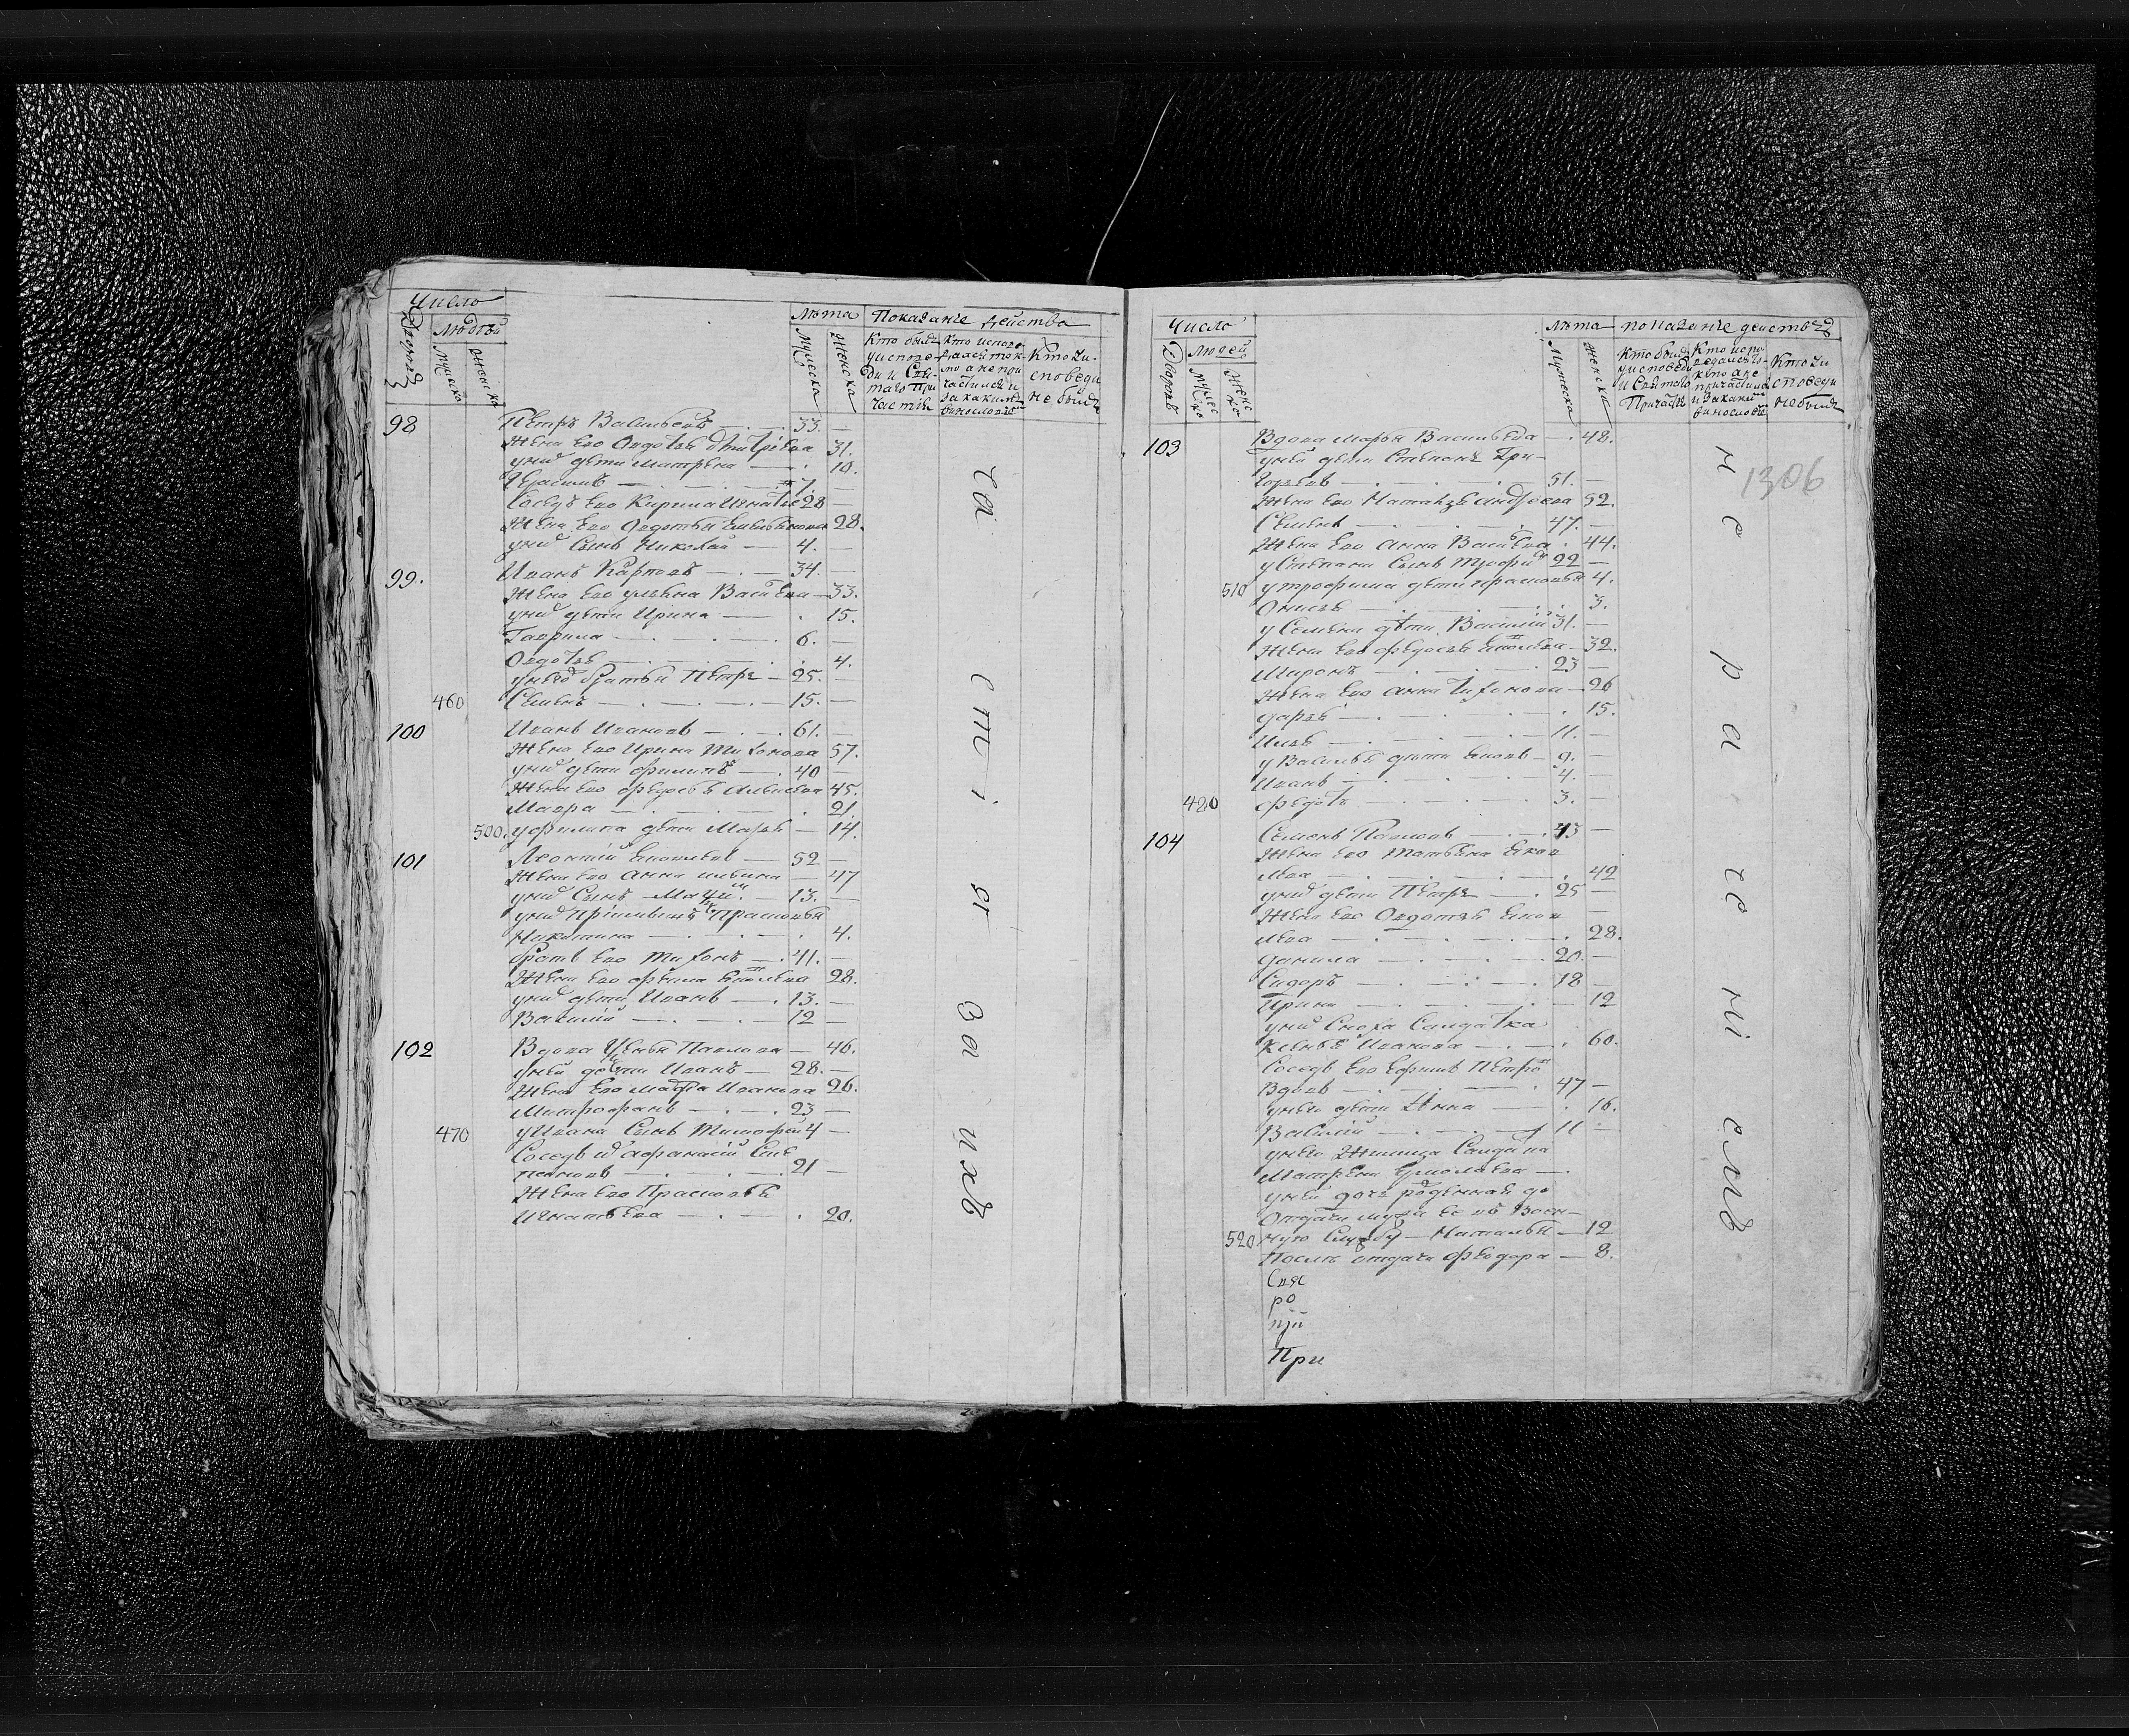 Число
Дворовъ
Людей
Мужеска
Женска
Лѣта
Мужеска
Женска
Показанїе действа
Кто былъ у исповеди и Святаго Причастїя
Кто исповедался токмо а не причастился и за какимъ винословїемъ
Кто и исповеди не былъ
98 Петръ Васильевъ 33.
Жена Ево Овдотья Дмитрїева 31.
у них дети Матрена 10.
Герасимъ 7.
Соседъ Ево Кирила Игнатьев 28
Жена Ево Овдотья 28.
у них Сынъ Николай 4.
99. Иванъ Карповъ 34.
Жена Ево Ульяна Васильева 33.
у них дети Ирина 15.
Гаврила 6.
Овдотья 4.
у нево братья Петръ 25.
460 Семенъ 15.
100 Иванъ Ивановъ 61.
Жена Ево Ирина Тихонова 57.
у них дети Филипъ 40
Жена Ево Федосья Алексеева 45.
Мавра 21.
500. у Филипа дети Марья 14.
101 Леонтїй 52
Жена Ево Анна 47
у них Сынъ 13.
у них Прїимышъ Прасковья
Никитина 4.
братъ Ево Тихонъ 41.
Жена Ево 28.
у них дети Иванъ 13.
Василїй 12
102 Вдова Павлова 46.
у ней дети Иванъ 28.
Жена Ево Марфа Иванова 26.
Митрофанъ 23
470 у Ивана Сынъ Тимофей 4
Соседъ их Афанасїй Сте
пановъ 21
Жена Ево Прасковья
Игнатьева 20.
ча
стї
ег
за
ихъ
Число
Дворовъ
Людей
Мужеско
Женско
Лѣта
Мужеска
Женска
показанїе действъ
Кто былъ у исповеди и Святаго Причастїя
Кто исповедался токмо а не причастился и за каким винословием
Кто и исповеди не былъ
1306
103 Вдова Марья Васильева 48.
у ней дети Степанъ Гри-
горьевъ 51.
Жена Ево Наталья Андреева 52.
Семенъ 47.
Жена Ево Анна Васильева 44.
у Степана Сынъ Трофим 22
510 у Трофима дети Прасковья 4.
Онисья 3.
у Семена дети Василїй 31.
Жена Ево Федосья 32.
Миронъ 23
Жена Ево Анна Тихонова 26
Дарья 15.
Илья 11.
у Василья дети 9.
Иванъ 4.
480 Федотъ 3.
104 Семенъ Павловъ 43
Жена Ево Татьяна Яков
лева 42
у них дети Петръ 25
Жена Ево Овдотья Яков
лева 28.
Данила 20.
Сидоръ 18
Ирина 12
у них Сноха Салдатка
Ксенья Иванова 60.
Соседъ Ево Ефимъ Петров
Вдовъ 47
у нево дети Анна 16.
Василїй 11
у нево Жилица Салдатка
Матрена Ермолаева
у ней дочь рожденная до
Отдачи мужа ее въ Воен-
520 ную Службу Наталья 12
После отдачи Феодора 8.
Свяс
ро
При
и
с
р
а
че
нї
емъ